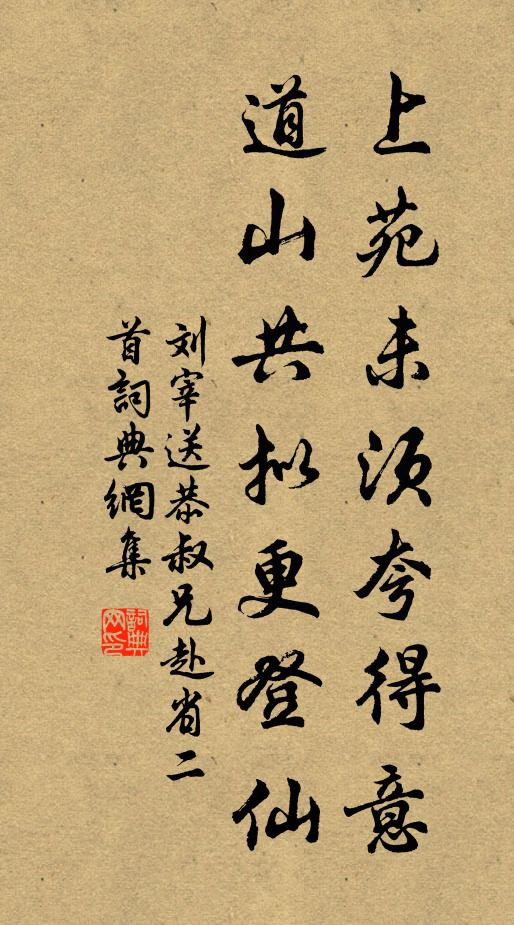 上苑未须夸得意
道山共拟更登仙
刘宰送恭叔兄赴省二
首詞典網集
詞典
网印